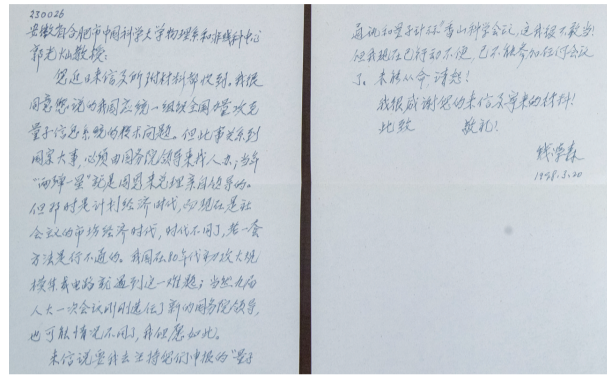 230026
安徽省合肥市中国科学大学物理系和非线科中心
郭光灿教授：
您近日来信及所附材料都收到。我很
同意您说的我国应统一组织全国力量攻克
量子信息系统的技术问题。但此事关系到
国家大事，必须由国务院领导来找人办；当年
“两弹一星”就是周恩来总理亲自领导的。
但那时是计划经济时代，而现在是社
会主义的市场经济时代，时代不同了，老一套
方法是行不通的。我国在80年代初攻大规
模集成电路就遇到这一难题；当然九届
人大一次会议刚刚选任了新的国务院领导，
也可能情况不同了，我但愿如此。
来信说要我去主持您们申报的“量子
通讯和量子计算”香山科学会议，这我很不敢当！
但我现在已行动不便，已不能参加任何会议
了。未能从命，请恕！
我很感谢您的来信及寄来的材料！
此致 敬礼！
钱学森
1998.3.20